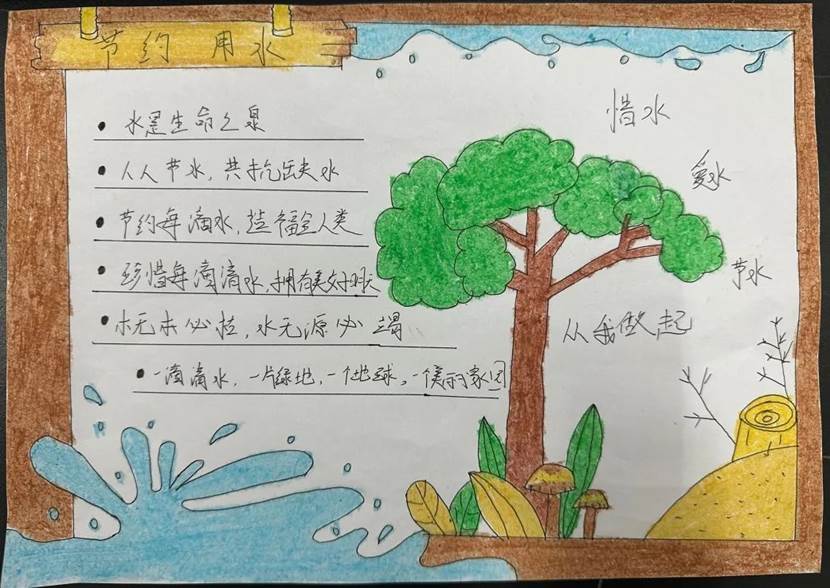 节约 用水
水是生命之泉
人人节水，共抗
节约每滴水，造福全人类
珍惜每滴滴水，拥有美好明天
木无本必枯，水无源必
一滴滴水，一片绿地，一个地球，一个美丽家园
惜水
爱水
节水
从我做起